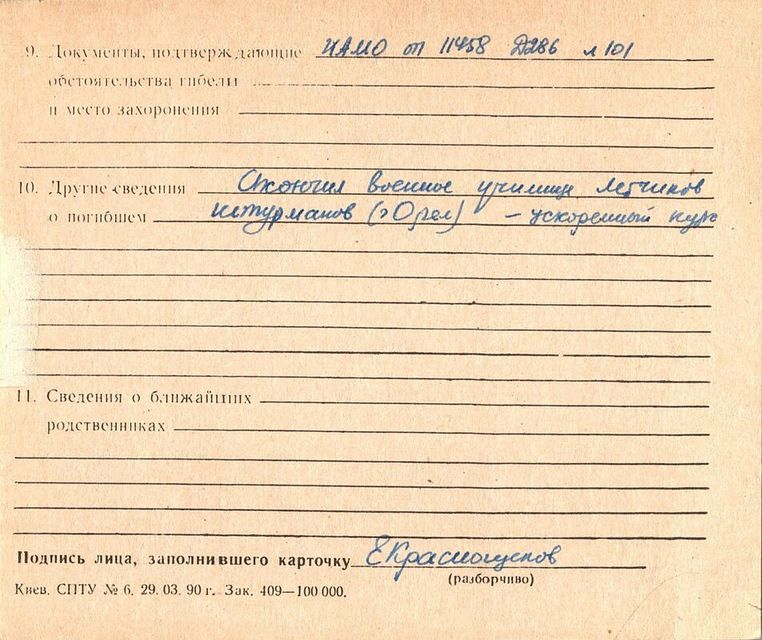 9. Документы, подтверждающие ЦАМО оп 11458 Д286 л 101
обстоятельства гибели
и место захоронения
10. Другие сведения Окончил военное училище летчиков
о погибшем штурманов (г Орел) – ускоренный курс
11. Сведения о ближайших
родственниках
Подпись лица, заполнившего карточку ЕКраснощеков
(разборчиво)
Киев. СПТУ № 6. 29. 03. 90 г. Зак. 409—100 000.